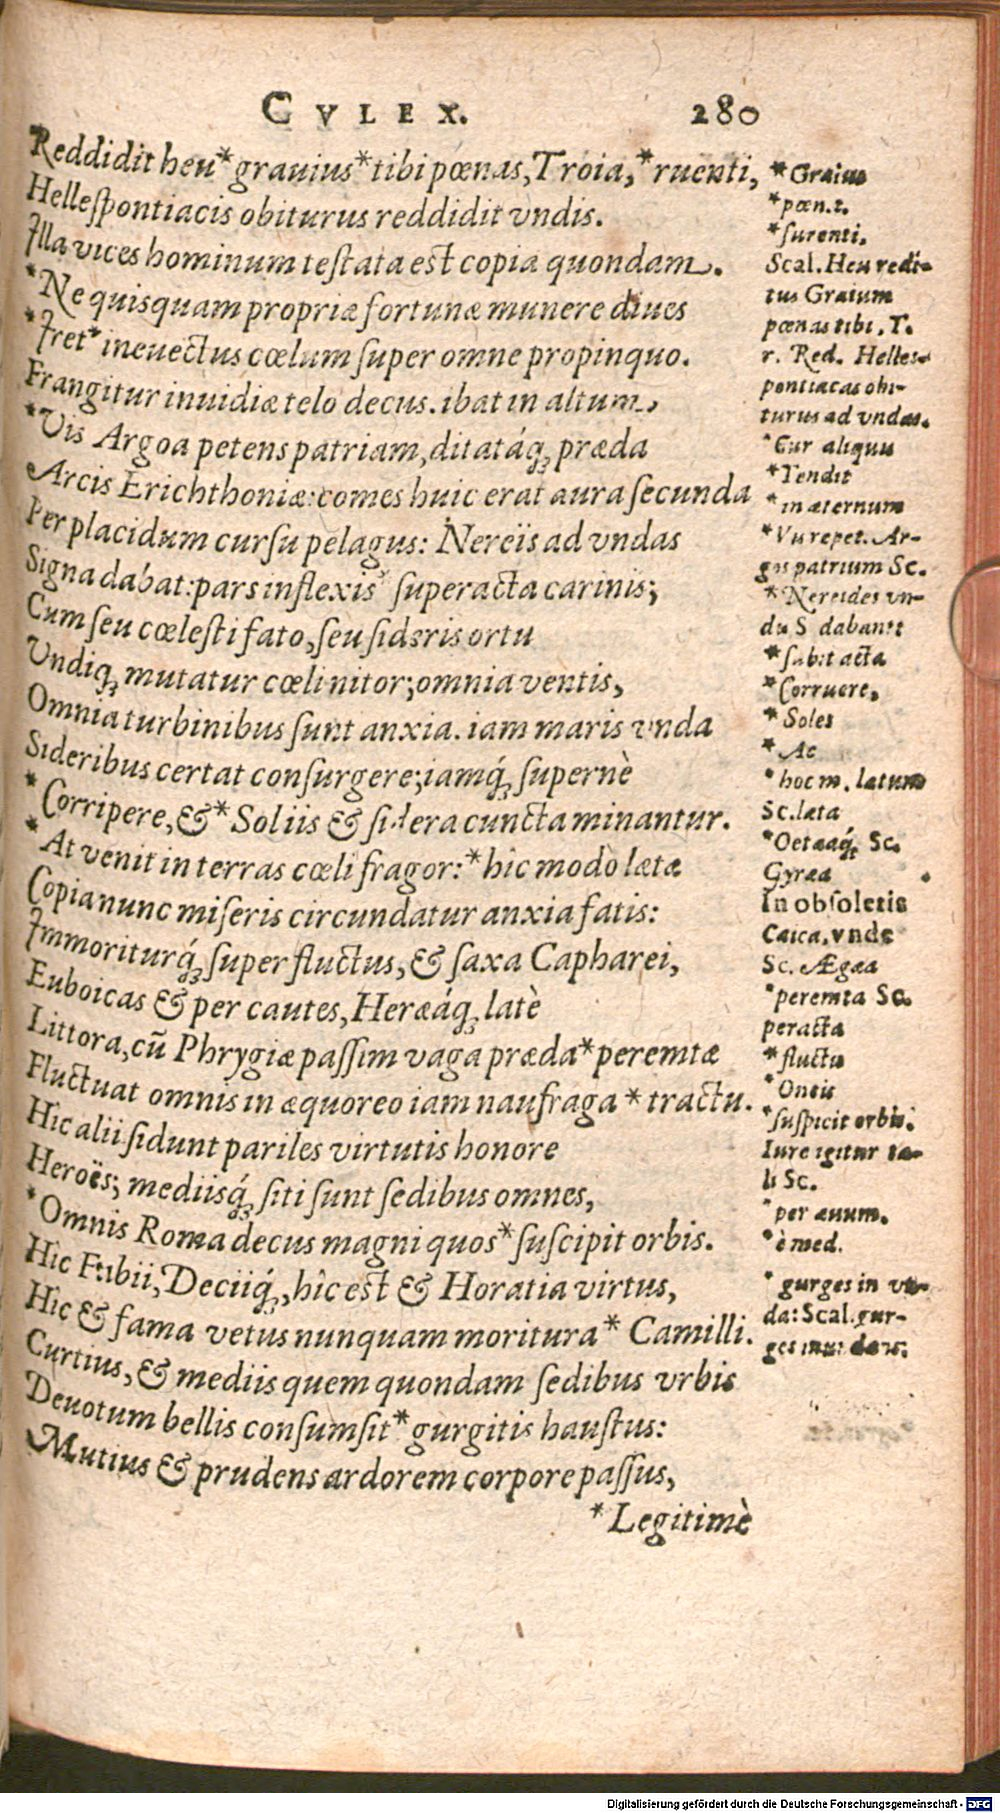 CVLEX. 280
Reddidit heu* grauius* tibi pœnas, Troia, *ruenti,
Helleſpontiacis obiturus reddidit vndis.
Illa vices hominum teſtata eſt copia quondam.
*Ne quisquam propriæ fortunæ munere diues
*Iret* ineuectus cœlum ſuper omne propinquo.
Frangitur inuidiæ telo decus. ibat in altum,
*Vis Argoa petens patriam, ditatáq; præda
Arcis Erichthoniæ: comes huic erat aura ſecunda
Per placidum curſu pelagus: Nereïs ad vndas
Signa dabat: pars inflexis* ſuperacta carinis;
Cum ſeu cœleſti fato, ſeu sideris ortu
Vndiq; mutatur cœli nitor; omnia ventis,
Omnia turbinibus ſunt anxia. iam maris vnda
Sideribus certat conſurgere; iamq́; ſupernè
*Corripere, & *Soliis & sidera cuncta minantur.
*At venit in terras cœli fragor: *hic modò lætæ
Copia nunc miſeris circundatur anxia fatis:
Immoriturq́; ſuper fluctus, & ſaxa Capharei,
Euboicas & per cautes, Heræáq; latè
Littora, cū Phrygiæ paſſim vaga præda *peremtæ
Fluctuat omnis in æquoreo iam naufraga *tractu.
Hic alii sidunt pariles virtutis honore
Heroës; mediisq́; siti ſunt ſedibus omnes,
*Omnis Roma decus magni quos *ſuſcipit orbis.
Hic Fabii, Deciiq́;, hîc eſt & Horatia virtus,
Hic & fama vetus nunquam moritura* Camilli.
Curtius, & mediis quem quondam ſedibus vrbis
Deuotum bellis conſumſit* gurgitis hauſtus:
Mutius & prudens ardorem corpore paſſus,
*Legitimè
*Graius
*pœn.t.
*furenti.
Scal. Heu redi-
tus Graium
pœnas tibi. T.
r. Red. Helles-
pontiacas obi-
turus ad vndas.
*Cur aliquis
*Tendit
*in æternum
*Vu repet. Ar-
gos patrium Sc.
*Nereides vn-
da S dabant
*ſubit acta
*Corruere,
*Soles
*Ac
*hoc m. latum
Sc. læta
*Oetæaq́; Sc.
Gyræa
In obſoletis
Caica, vnde
Sc. Ægæa
*peremta Sc.
peracta
*fluctu
*Oneis
*ſuſpicit orbis.
Iure igitur ta-
li Sc.
*per æuum.
*è med.
*gurges in vn-
da: Scal. gur-